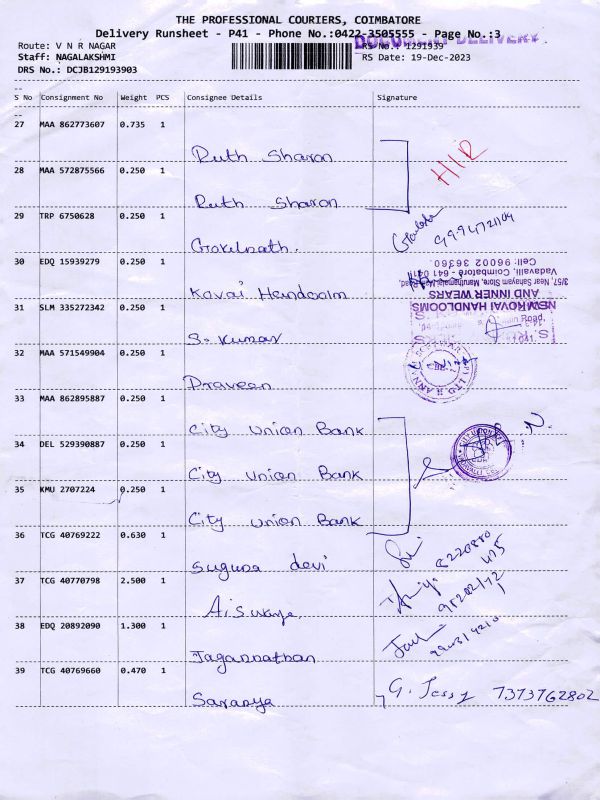 THE PROFESSIONAL COURIERS, COIMBATORE
Delivery Runsheet - P41 - Phone No.:0422-3505555 - Page No.:3
DOCUMENT DELIVERY
Route: V N R NAGAR RS No.: 1291939
Staff: NAGALAKSHMI RS Date: 19-Dec-2023
DRS No.: DCJB129193903
S No Consignment No Weight PCS Consignee Details Signature
27 MAA 862773607 0.735 1 Ruth Sharon
H/R
28 MAA 572875566 0.250 1 Ruth Sharon
29 TRP 6750628 0.250 1 Gokulnath.
30 EDQ 15939279 0.250 1 Kovai Handloom
NEW KOVAI HANDLOOMS
AND INNER WEARS
3/57, Near Sahayam Store, Maruthamalai Road,
Vadavalli, Coimbatore - 641 041.
Cell: 96002 36360.
31 SLM 335272342 0.250 1 S. Kumar
32 MAA 571549904 0.250 1 Praveen
33 MAA 862895887 0.250 1 City Union Bank
34 DEL 529390887 0.250 1 City Union Bank
35 KMU 2707224 0.250 1 City Union Bank
36 TCG 40769222 0.630 1 Suguna devi
8220880
475
37 TCG 40770798 2.500 1 Aiswarya
38 EDQ 20892090 1.300 1 Jagannathan
39 TCG 40769660 0.470 1 Saranya G. Jessy 7373762802